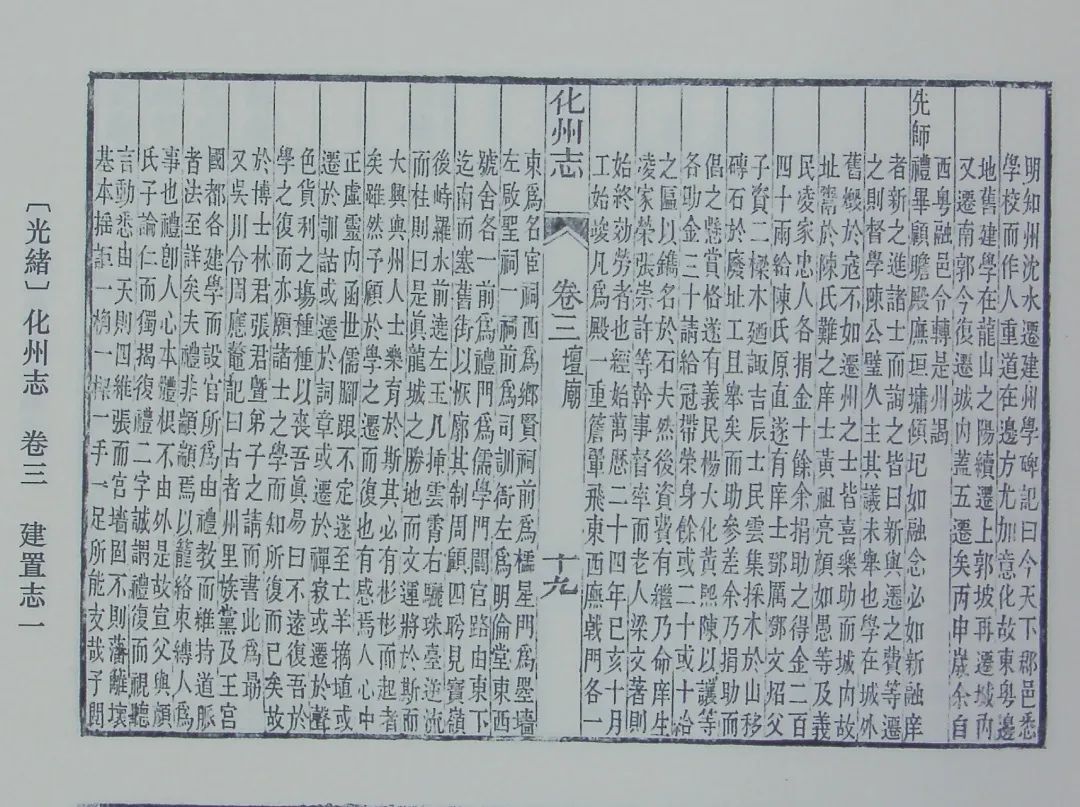 明知州沈水遷建州學碑記曰今天下郡邑悉
學校而作人重道在邊方尤加意化故東粵邊
地舊建學在龍山之陽續遷上郭坡再遷城內
又遷南郭今復遷城內蓋五遷矣丙申歲余自
西粵融邑令轉是州謁
先師禮畢顧瞻殿廡垣墉傾圮如融念必如新融庠
者新之進諸士而詢之皆曰新與遷之善遷
之則督學陳公璧久主其議未舉也學在城外
舊燬於寇不如遷州之士皆喜樂助而城內故
址鬻於陳氏難之庠士黃祖亮顏如愚等及義
民凌家忠人各捐金十餘余捐助之得金二百
四十兩給陳氏原直遂有庠士鄧厲鄧文炤父
子資二樑木廼諏吉辰士民雲集採木於山移
磚石於廢址工且舉矣而助參差余乃捐助而
倡之懸賞格遂有義民楊大化黃熙陳以讓等
各助金三十請給冠帶榮身餘或二十或十洽
之區以鐫名於石夫然後資費有繼乃命庠生
凌家榮張崇許等幹事督率而老人梁文著則
始終効勞者也經始萬歷二十四年巳亥十月
工始竣凡為殿一重簷翬飛東西廡戟門各一
化州志 卷三 壇廟 十九
東為名宦祠西為鄉賢祠前為櫺星門為墨墻
左啟聖祠一祠前為司訓衙左為明倫堂東西
號舍各一前為禮門為儒學門闢官路由東下
迄南而塞舊街以恢廓其制周顧四聆見寶嶺
後峙羅水前遶左玉几揷雲霄右驪珠臺逆流
而杜則曰是眞龍城之勝地而文運將於斯而
大興與州士人樂育於斯其必有彬彬而起者
矣雖然予願於學之遷而復也有感焉人心中
正虛靈內函世儒腳跟不定遂至亡羊摘埴或
遷於訓詁或遷於詞章或遷於禪寂或遷於聲
色貨利之場種種以喪吾眞易曰不遠復吾於
學之復而亦願諸士之學而知所復而已矣故
於博士林君張君暨弟子之請而書此為勗
又吳川令周應鰲記曰古者州里族黨及王宮
國都各建學而設官所為由禮教而維持道脈
者法至詳矣夫禮非顓顓焉以籠絡束縛人為
事也禮卽人心本體根不由外是故宣父與顏
氏子論仁而獨揭復禮二字誠謂禮復而視聽
言動悉由天則四維張而宮墻固不則藩離壞
基本搖詎一桷一椳一手一足所能支哉予閱
〔光緒〕化州志 卷三 建置志一